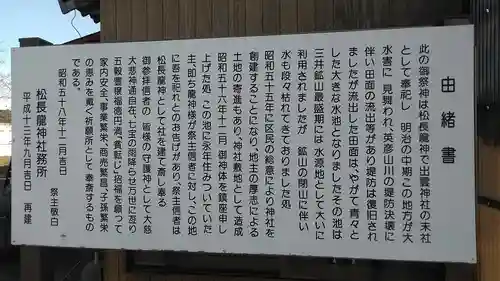 由緒書
此の御祭神は松長龍神で出雲神社の末社
として奉祀し 明治の中期この地方が大
水害に見舞われ英彦山川の堤防決壊に
伴い田面の流出等があり堤防は復旧され
ましたが流出した田面は、やがて青々と
した大きな水池となりましたその池は
三井鉱山最盛期には水源地として大いに
利用されましたが 鉱山の閉山に伴い
水も段々枯れてきてありました処
昭和五十五年に区民の総意により神社を
創建することになり、地主の厚志による
土地の寄進もあり、神社敷地として造成
昭和五十六年十二月 御神体を鎮座申し
上げた処 この池に永年住みついていた
主、即ち龍神様が祭主信者に対し、この地
に吾を祀れとのお告げがあり祭主信者は
松長龍神として社を建て斎し奉る
御参拝信者の 皆様の守護神として大慈
大悲神通自在、七宝の雨降らせ万世に忍り
五穀豊穣福徳円満、貧転じ招福を願って
家内安全、事業繁栄、商売繁昌、子孫繁栄
の恵みを戴く祈願所として奉斎するもの
である。
昭和五十八年十二月吉日 祭主敬白
松長龍神社務所
平成十三年九月吉日 再建